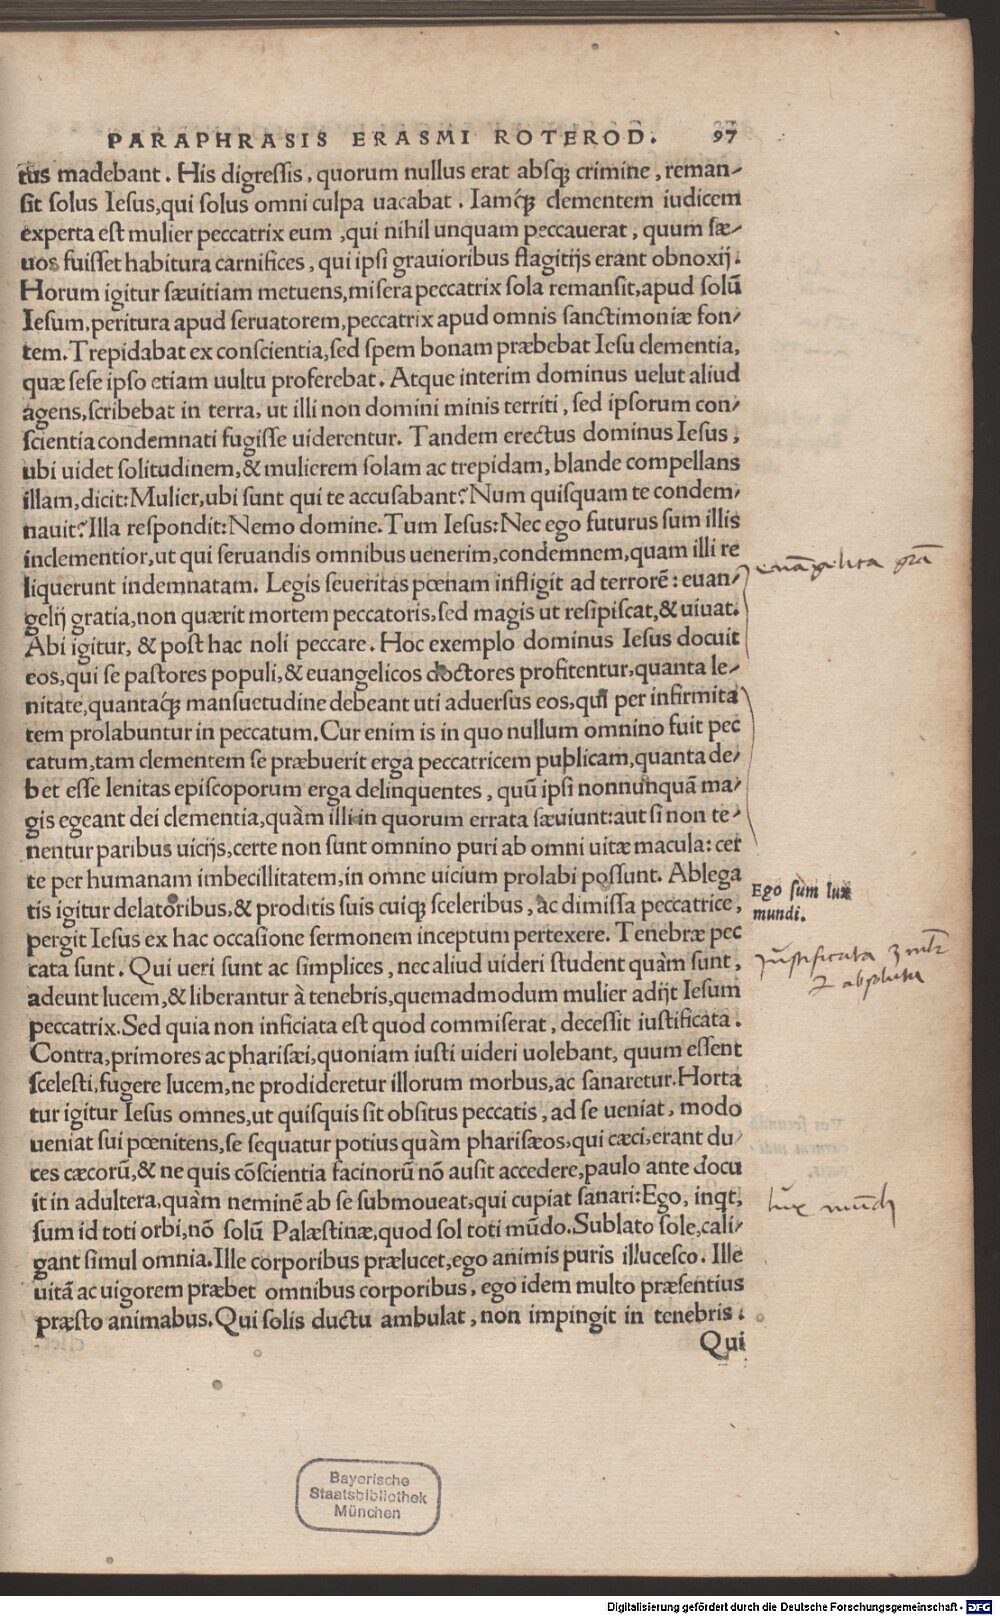 PARAPHRASIS ERASMI ROTEROD. 97
tus madebant. His digreſſis, quorum nullus erat abſqꝫ crimine, reman⸗
ſit ſolus Ieſus, qui ſolus omni culpa uacabat. Iamq́ꝫ clementem iudicem
experta eſt mulier peccatrix eum, qui nihil unquam peccauerat, quum ſæ⸗
uos fuiſſet habitura carnifices, qui ipſi grauioribus flagitijs erant obnoxij.
Horum igitur ſæuitiam metuens, miſera peccatrix ſola remanſit, apud ſolū
Ieſum, peritura apud ſeruatorem, peccatrix apud omnis ſanctimoniæ fon⸗
tem. Trepidabat ex conſcientia, ſed ſpem bonam præbebat Ieſu clementia,
quæ ſeſe ipſo etiam uultu proferebat. Atque interim dominus uelut aliud
agens, ſcribebat in terra, ut illi non domini minis territi, ſed ipſorum con⸗
ſcientia condemnati fugiſſe uiderentur. Tandem erectus dominus Ieſus,
ubi uidet ſolitudinem, & mulierem ſolam ac trepidam, blande compellans
illam, dicit: Mulier, ubi ſunt qui te accuſabant? Num quiſquam te condem⸗
nauit? Illa reſpondit: Nemo domine. Tum Ieſus: Nec ego futurus ſum illis
inclementior, ut qui ſeruandis omnibus uenerim, condemnem, quam illi re
liquerunt indemnatam. Legis ſeueritas pœnam infligit ad terrorē: euan⸗
gelij gratia, non quærit mortem peccatoris, ſed magis ut reſipiſcat, & uiuat.
Abi igitur, & poſt hac noli peccare. Hoc exemplo dominus Ieſus docuit
eos, qui ſe paſtores populi, & euangelicos doctores profitentur, quanta le⸗
nitate, quantaq́ꝫ manſuetudine debeant uti aduerſus eos, qui per infirmita
tem prolabuntur in peccatum. Cur enim is in quo nullum omnino fuit pec
catum, tam clementem ſe præbuerit erga peccatricem publicam, quanta de⸗
bet eſſe lenitas epiſcoporum erga delinquentes, quū ipſi nonnunquā ma⸗
gis egeant dei clementia, quàm illi in quorum errata ſæuiunt: aut ſi non te⸗
nentur paribus uicijs, certe non ſunt omnino puri ab omni uitæ macula: cer
te per humanam imbecillitatem, in omne uicium prolabi poſſunt. Ablega
tis igitur delatoribus, & proditis ſuis cuiqꝫ ſceleribus, ac dimiſſa peccatrice,
pergit Ieſus ex hac occaſione ſermonem inceptum pertexere. Tenebræ pec
cata ſunt. Qui ueri ſunt ac ſimplices, nec aliud uideri ſtudent quàm ſunt,
adeunt lucem, & liberantur à tenebris, quemadmodum mulier adijt Ieſum
peccatrix. Sed quia non inficiata eſt quod commiſerat, deceſſit iuſtificata.
Contra, primores ac phariſæi, quoniam iuſti uideri uolebant, quum eſſent
ſceleſti, fugere lucem, ne prodideretur illorum morbus, ac ſanaretur. Horta
tur igitur Ieſus omnes, ut quiſquis ſit obſitus peccatis, ad ſe ueniat, modo
ueniat ſui pœnitens, ſe ſequatur potius quàm phariſæos, qui cæci, erant du⸗
ces cæcorū, & ne quis cōſcientia facinorū nō auſit accedere, paulo ante docu
it in adultera, quàm neminē ab ſe ſubmoueat, qui cupiat ſanari: Ego, inqt,
ſum id toti orbi, nō ſolū Palæſtinæ, quod ſol toti mūdo. Sublato ſole, cali⸗
gant ſimul omnia. Ille corporibus prælucet, ego animis puris illuceſco. Ille
uitā ac uigorem præbet omnibus corporibus, ego idem multo præſentius
præſto animabus. Qui ſolis ductu ambulat, non impingit in tenebris.
Qui
euāgelica grā
Ego ſum lux
mundi.
Juſtificata
& abſoluta
lux mūdi
Bayerische
Staatsbibliothek
München
Digitalisierung gefördert durch die Deutsche Forschungsgemeinschaft - DFG